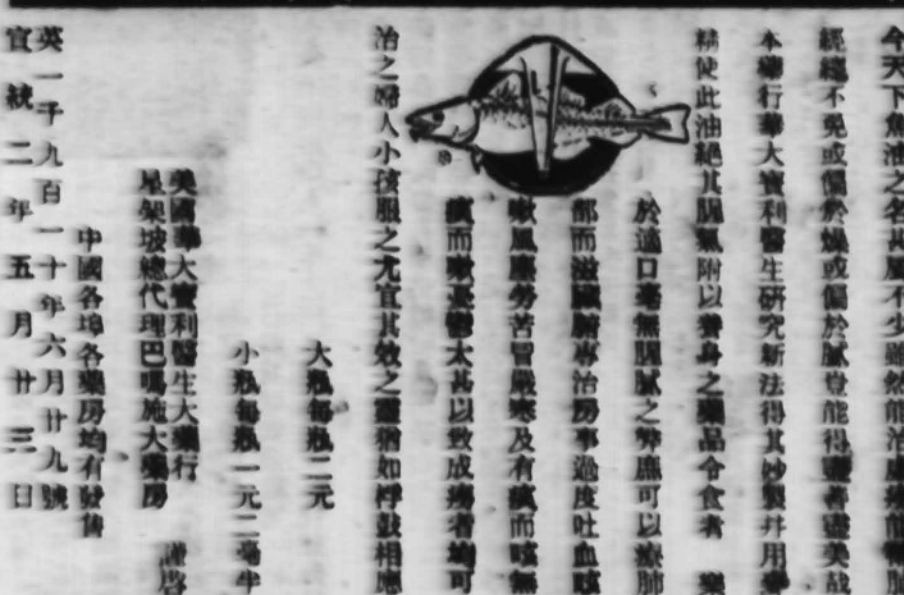 今天下魚油之名其屬不少雖然能治虛癆能補腦
經總不免或偏於燥或偏於膩豈能得盡善盡美哉
本藥行華大寶利醫生研究新法得其妙製幷用
精使此油絕其腥氣附以養身之藥品令食者 樂
於適口毫無腥膩之弊庶可以療肺
部而滋臟腑專治房事過度吐血咳
嗽風塵勞苦冒嚴寒及有痰而咳無
痰而嗽憂鬱太甚以致成癆者均可
治之婦人小孩服之尤宜其效之靈猶如桴鼓相應
大瓶每瓶二元
小瓶每瓶一元二毫半
美國華大寶利醫生大藥行
星架坡總代理巴嗎施大藥房 謹啓
中國各埠各藥房均有發售
英一千九百一十年六月廿九號
宣統二年五月廿三日